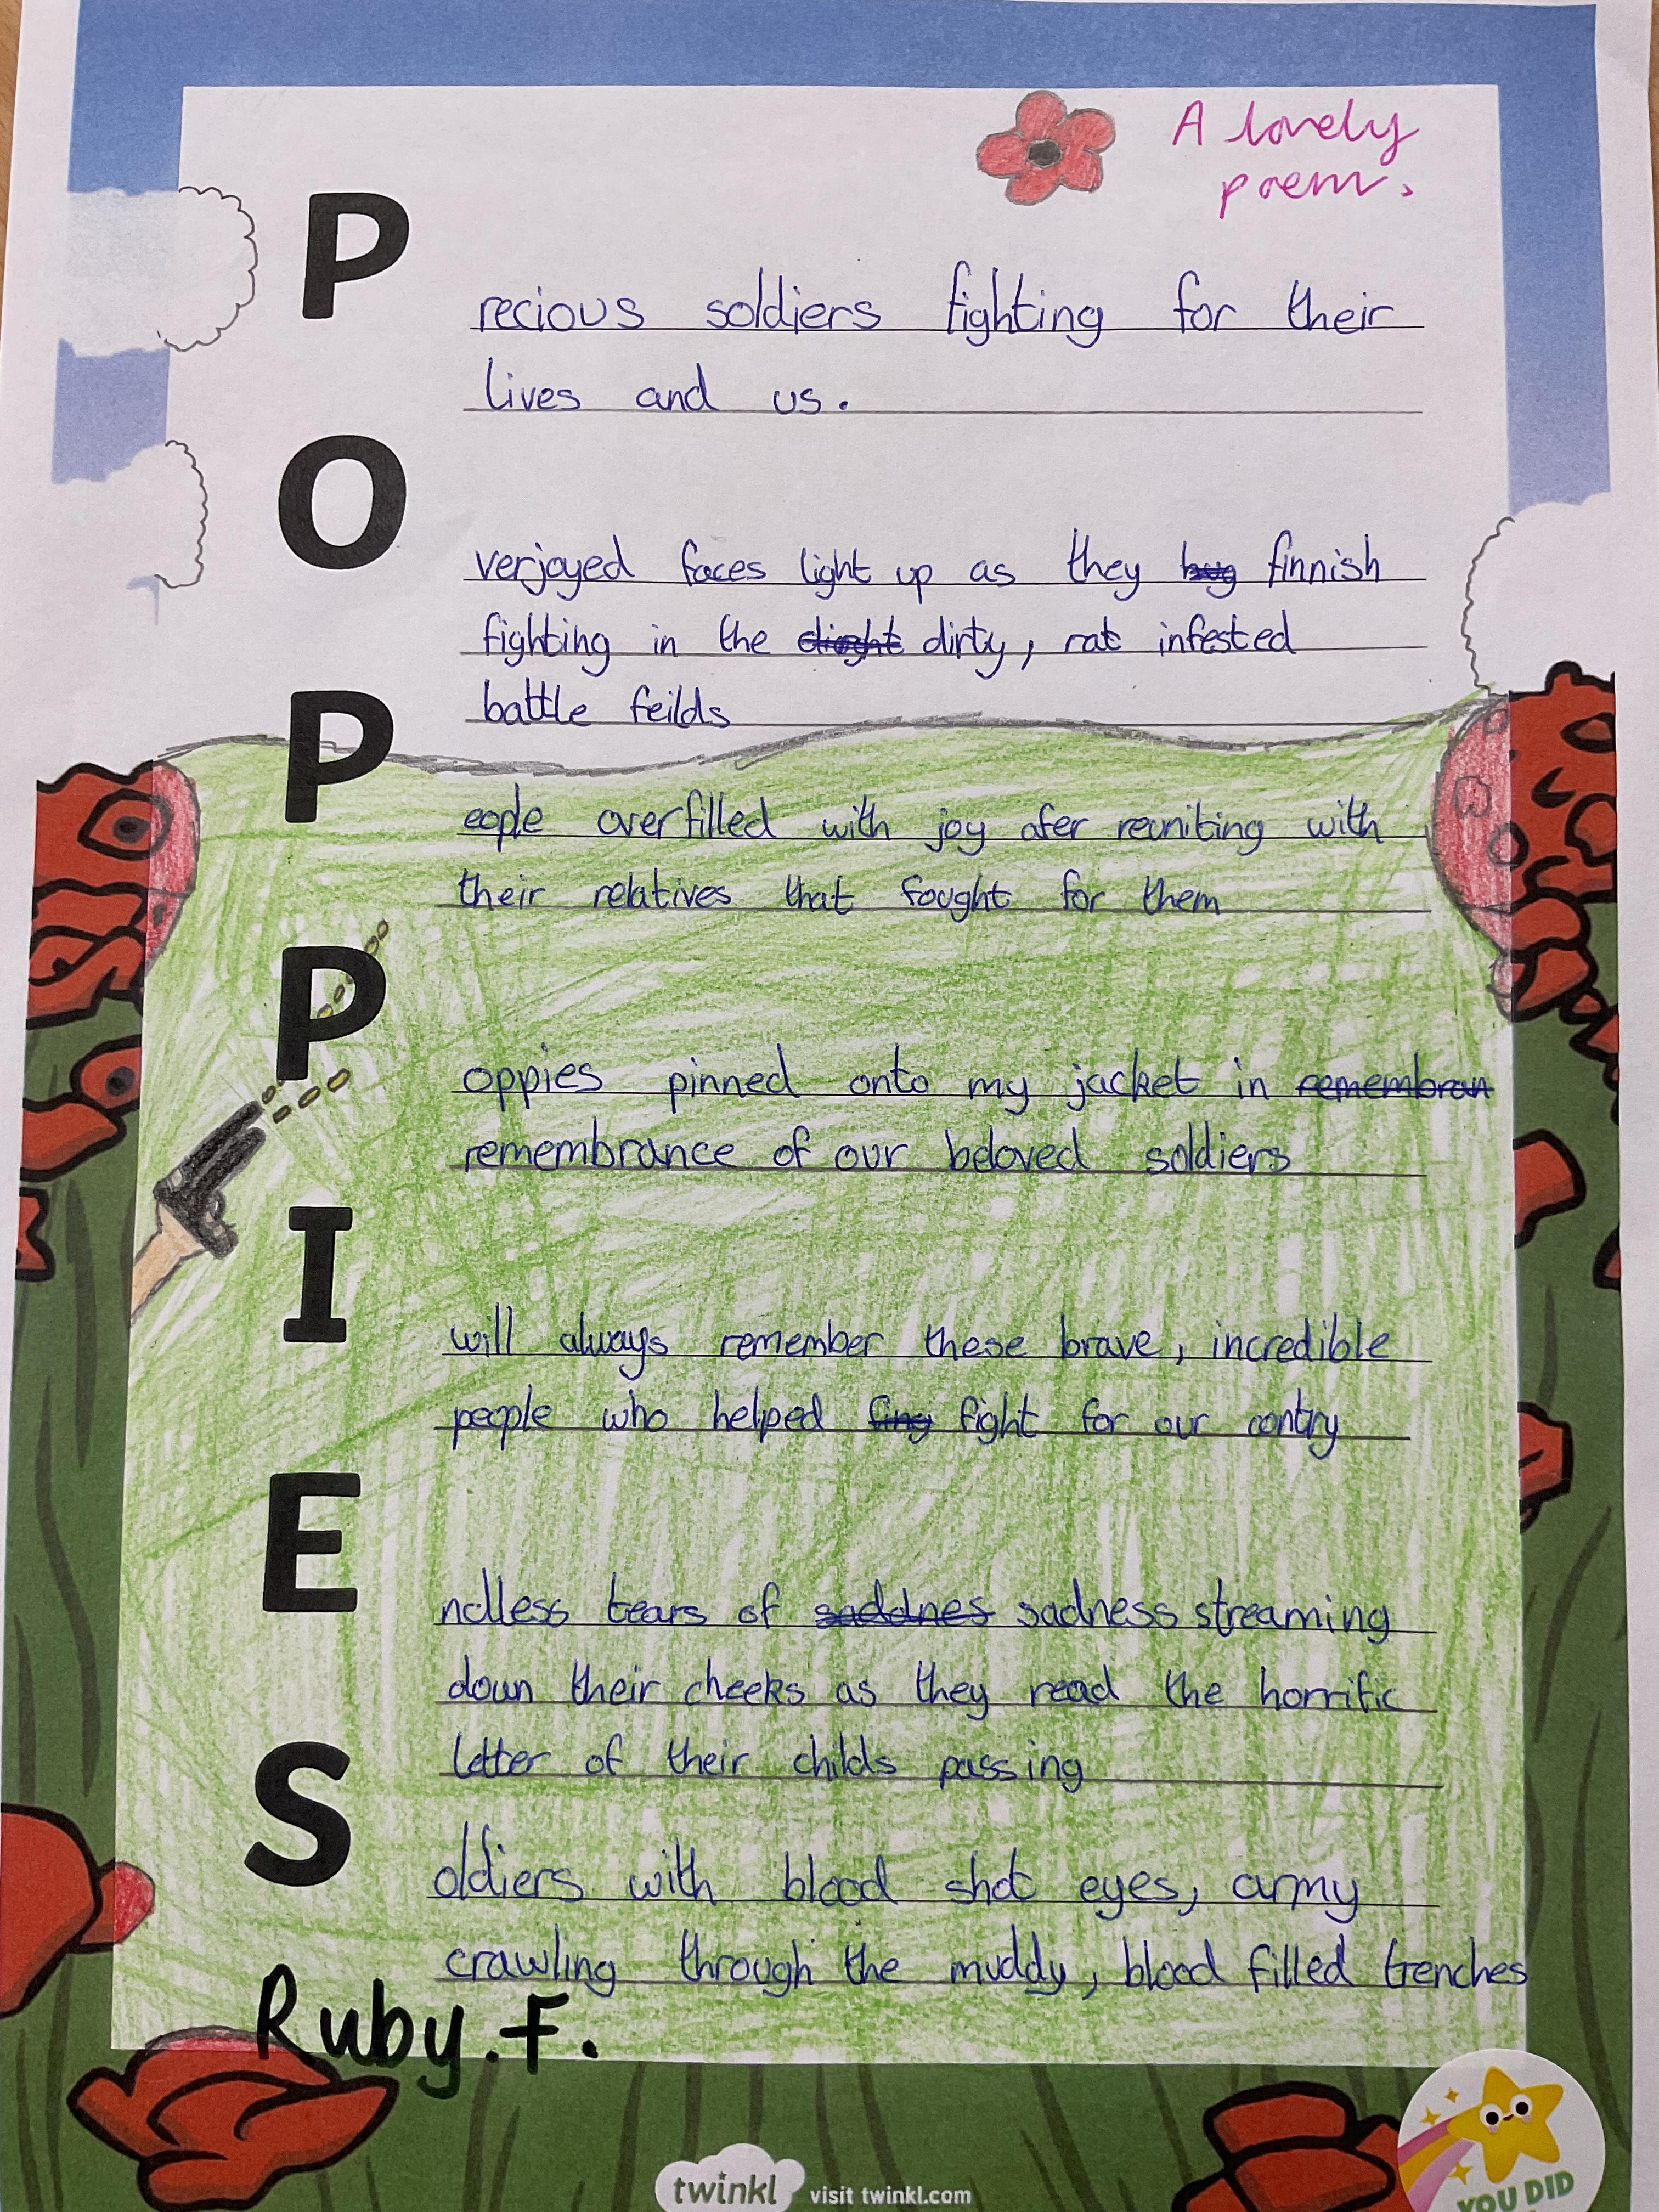 A lovely
poem.
Precious soldiers fighting for their
lives and us.
Overjoyed faces light up as they finnish
fighting in the dirty, rat infested
battle feilds
People overfilled with joy afer reuniting with
their relatives that fought for them
Poppies pinned onto my jacket in remembran
remembrance of our beloved soldiers
I will always remember these brave, incredible
people who helped fing fight for our contry
Endless tears of saddnes sadness streaming
down their cheeks as they read the horrific
letter of their childs passing
Soldiers with blood shot eyes, army
crawling through the muddy, blood filled trenches
Ruby.F.
twinkl visit twinkl.com
YOU DID